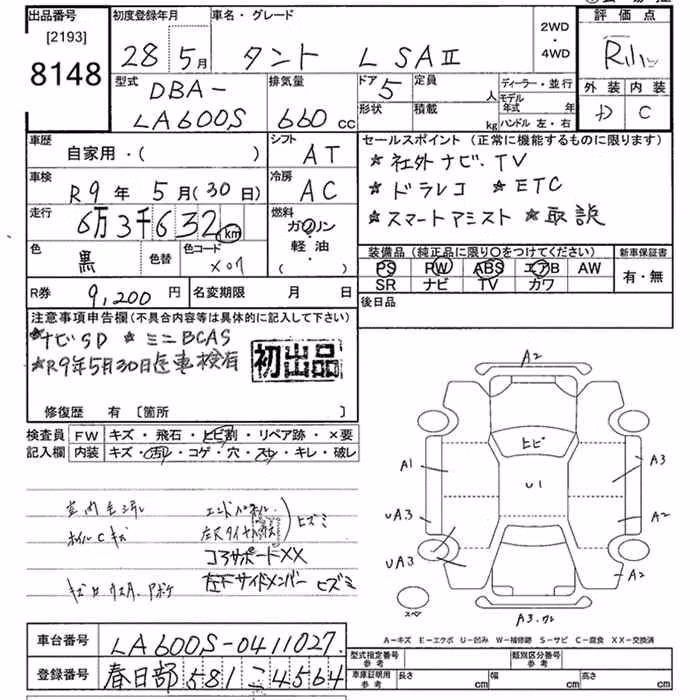 出品番号
[2193]
8148
初度登録年月
28 5月
車名・グレード
タント L SAⅡ
2WD
・
4WD
評価点
外装 内装
D C
型式
DBA-
LA600S
排気量
660 cc
ドア
5
形状
定員
人
積載
kg
ディーラー・並行
モデル
年式 年
ハンドル 左・右
車歴
自家用・( )
シフト
AT
セールスポイント (正常に機能するものに限ります)
★ 社外ナビ.TV
★ ドラレコ ★ ETC
★ スマートアシスト ★ 取説
車検
R9 年 5 月(30日)
冷房
AC
走行
6万3千632 km
燃料
ガソリン
・
軽・油
・
( )
色
黒
色替
色コード
X07
装備品 (純正品に限り〇をつけてください)
PS PW ABS エアB AW
SR ナビ TV カワ
新車保証書
有・無
R券
9,200 円
名変期限 月 日
後日品
注意事項申告欄(不具合内容等は具体的に記入して下さい)
★ナビSD ★ミニBCAS
★R9年5月30日迄車検有
初出品
修復歴 有 〔箇所 〕
検査員 FW キズ・飛石・ヒビ割・リペア跡・×要
記入欄 内装 キズ・汚レ・コゲ・穴・スレ・キレ・破レ
室内毛汚レ
エンドパネル
ヒズミ
コアサポートXX
左下サイドメンバー ヒズミ
A2
ヒビ
A1
U1
A3
UA3
A2
UA3
A2
スペ
A3.ワレ
A-キズ E-エクボ U-凹み W-補修跡 S-サビ C-腐食 XX-交換済
車台番号
LA600S-0411027
登録番号
春日部 581 こ 4564
型式指定番号
参考
類別区分番号
参考
車庫証明用
参考
長さ cm
幅 cm
高さ cm